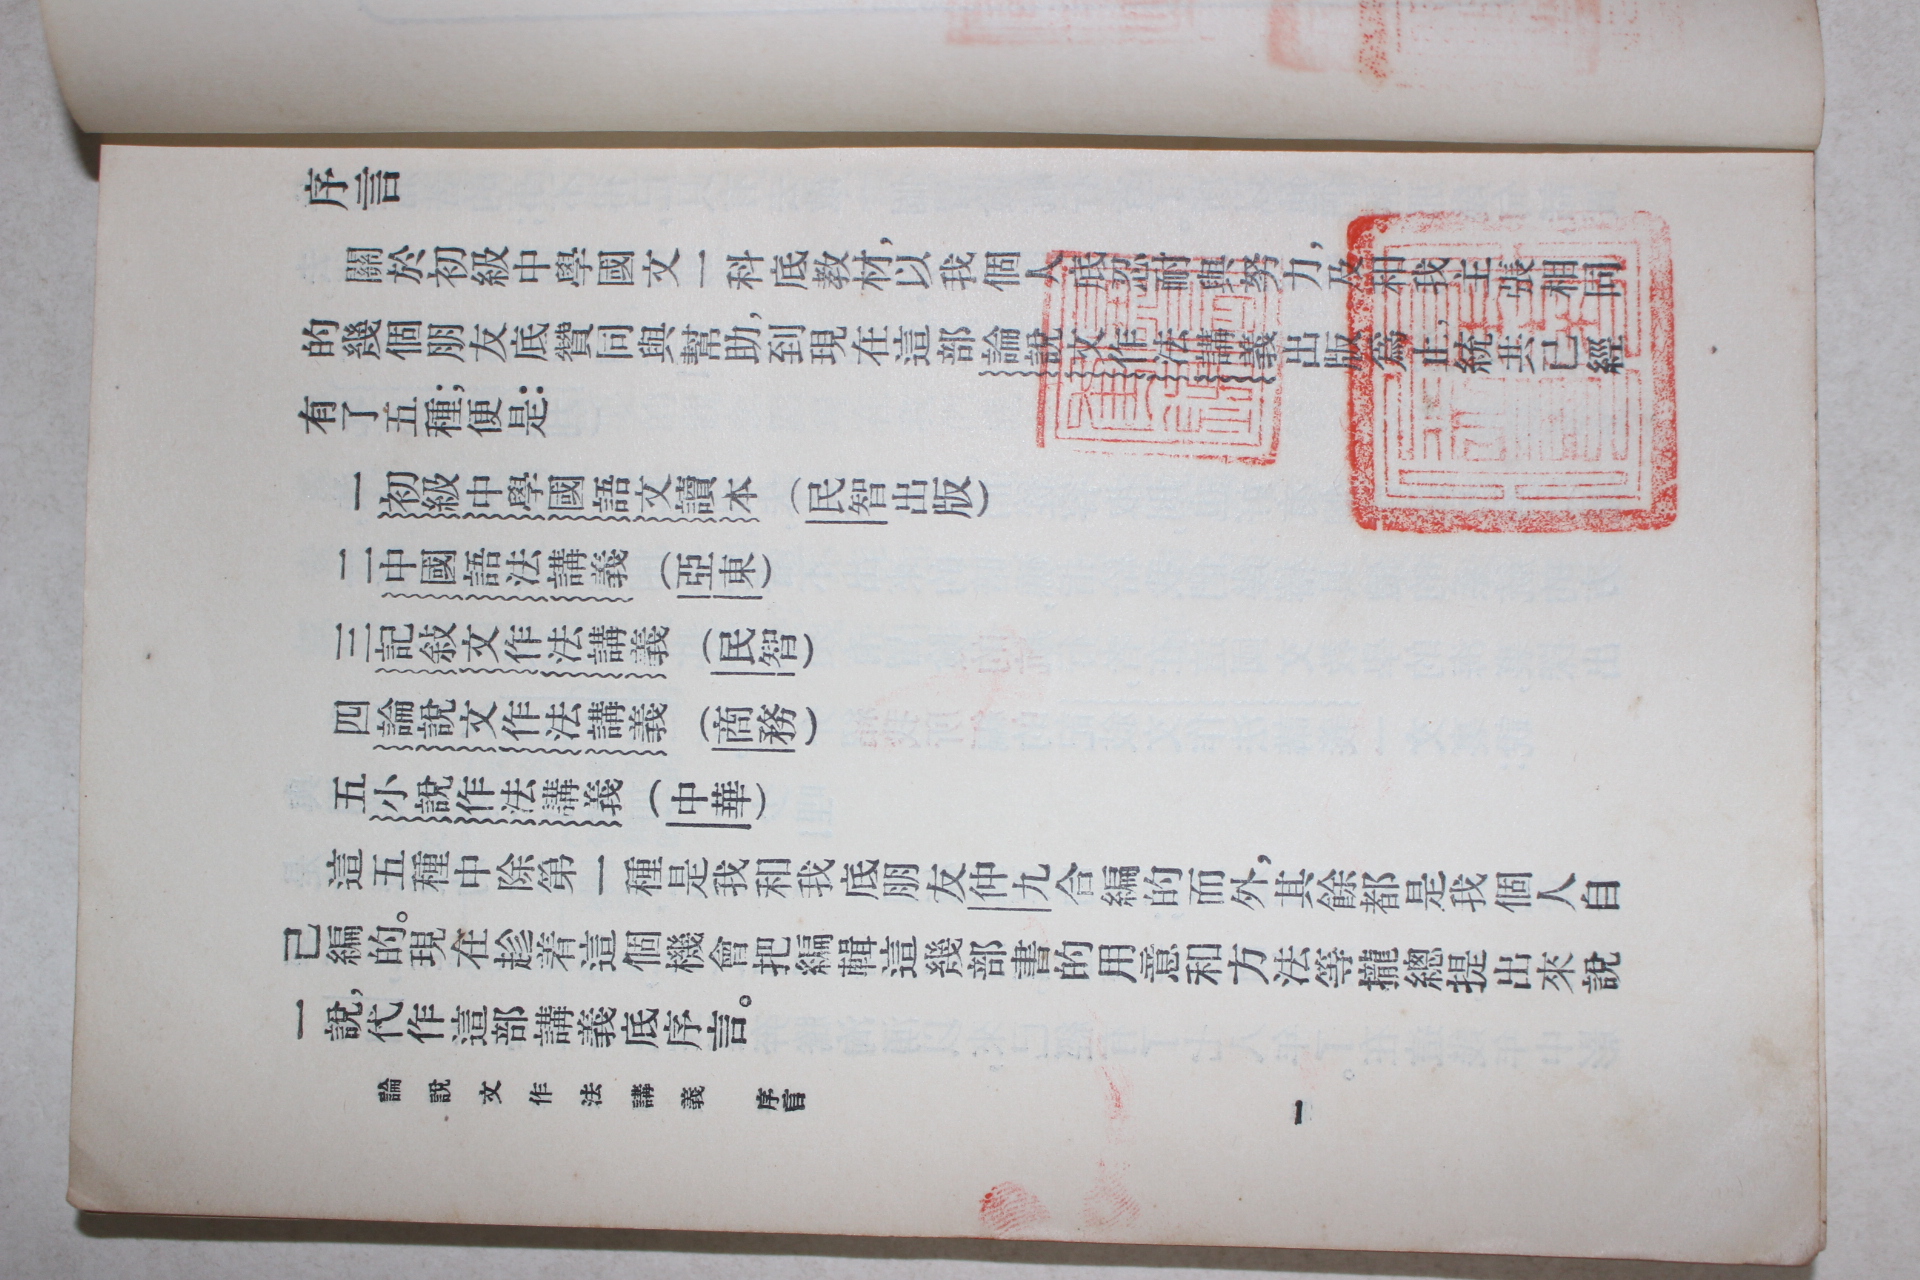 序言
關於初級中學國文一科底教材，以我個人底忍耐與努力，及和我主張相同
的幾個朋友底贊同與幫助，到現在這部論說文作法講義出版爲止，統共已經
有了五種；便是：
一初級中學國語文讀本（民智出版）
二中國語法講義（亞東）
三記敍文作法講義（民智）
四論說文作法講義（商務）
五小說作法講義（中華）
這五種中除第一種是我和我底朋友仲九合編的而外，其餘都是我個人自
己編的。現在趁着這個機會把編輯這幾部書的用意和方法等攏總提出來說
一說，代作這部講義底序言。
論說文作法講義 序言 一